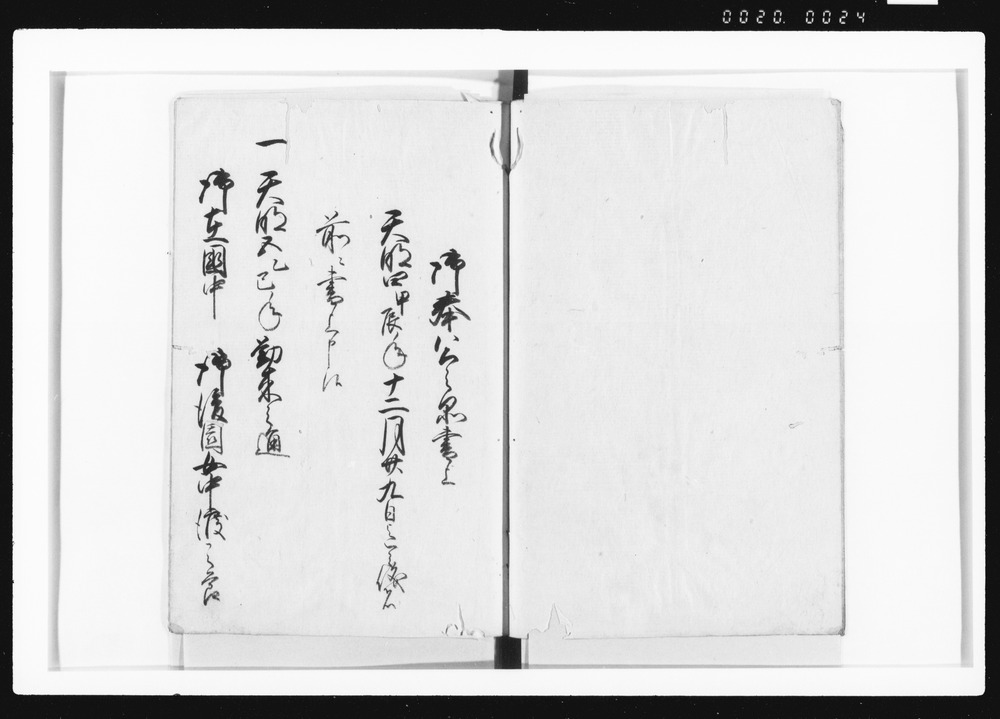 0020. 0024
御奉公之品書上
天明四甲辰年十二月廿九日迄之儀者
前々書上申候
一 天明五乙巳年勤来之通
御在國中 御後園女中渡之節